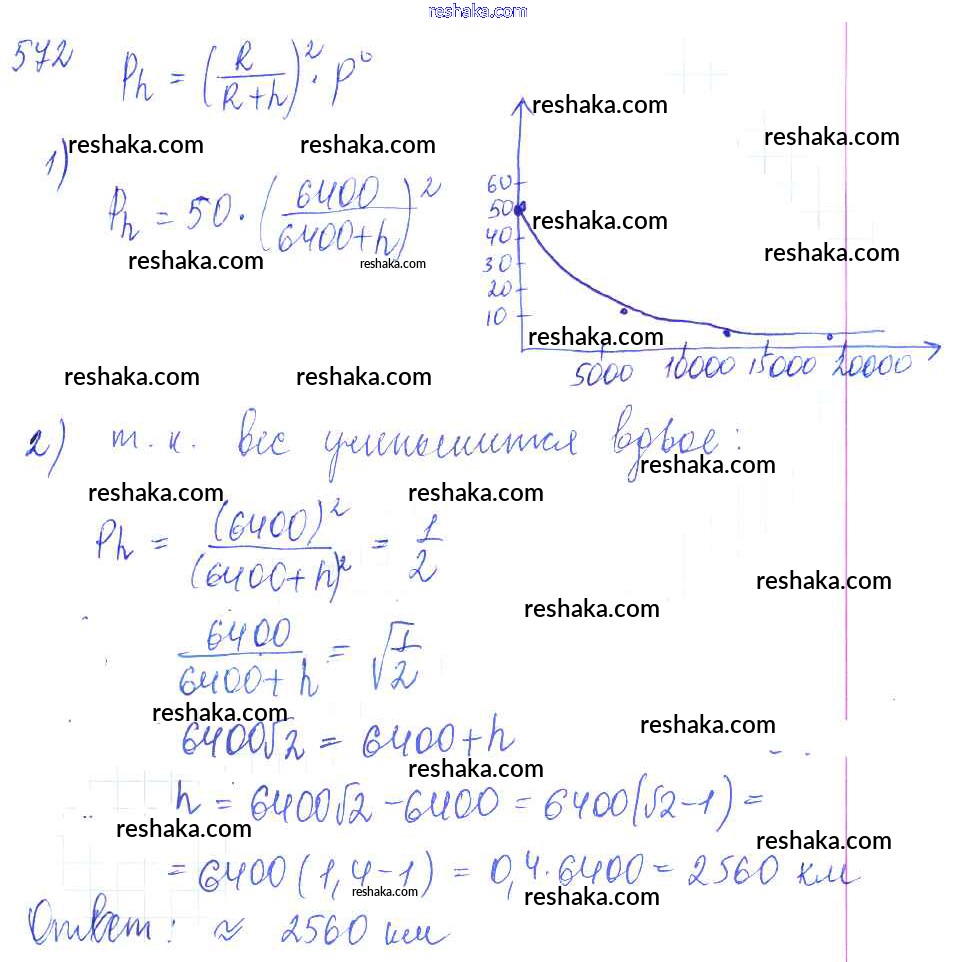 reshaka.com
572
Ph = (R/(R+h))² · P⁰
reshaka.com reshaka.com reshaka.com reshaka.com
1)
Ph = 50 · (6400/(6400+h))²
reshaka.com reshaka.com reshaka.com reshaka.com
60
50
40
30
20
10
reshaka.com
5000 10000 15000 20000
reshaka.com reshaka.com
2) т.к. вес уменьшится вдвое:
reshaka.com
reshaka.com reshaka.com
Ph = (6400)²/(6400+h)² = 1/2
reshaka.com reshaka.com
6400/(6400+h) = √1/2
reshaka.com reshaka.com
6400√2 = 6400+h
reshaka.com
h = 6400√2 - 6400 = 6400(√2-1) =
reshaka.com reshaka.com
= 6400(1,4-1) = 0,4·6400 = 2560 км
reshaka.com reshaka.com
Ответ: ≈ 2560 км